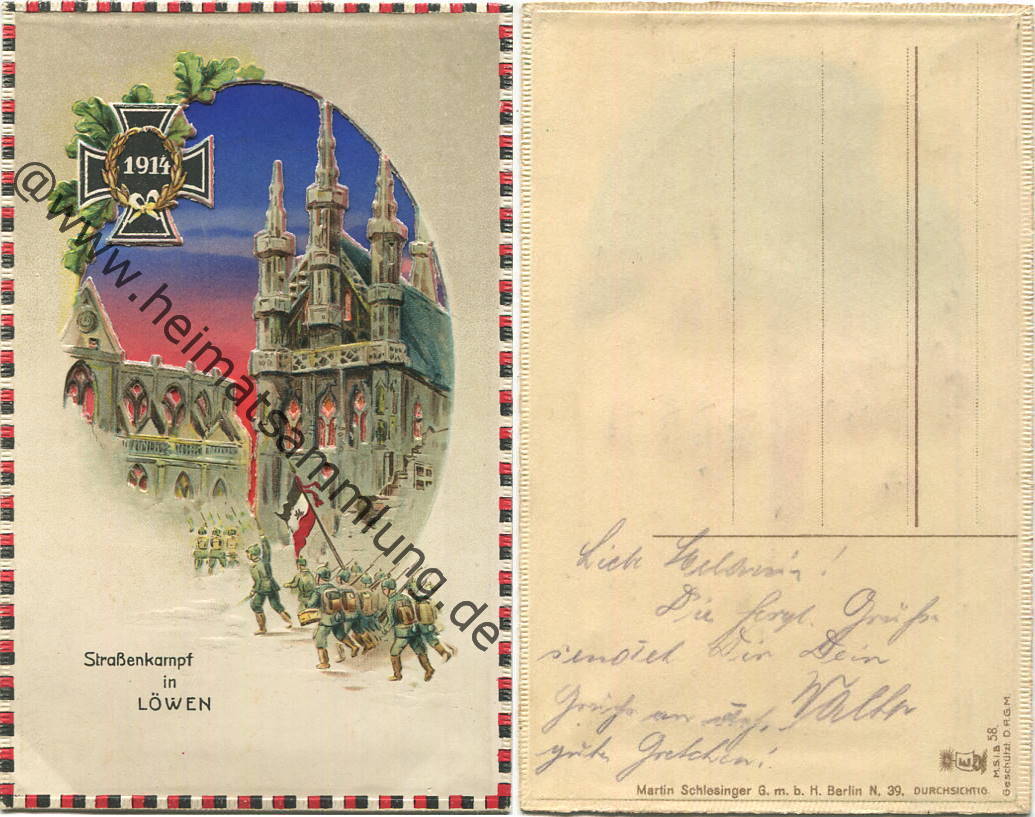 1914
@www.heimatsammlung.de
Straßenkampf
in
LÖWEN
Die herzl. Grüße
sendet Dir Dein
Walter
Grüße an
gute Gretchen!
M.S.i.B. 58.
Geschützt. D.R.G.M.
E
Martin Schlesinger G. m. b. H. Berlin N. 39. DURCHSICHTIG